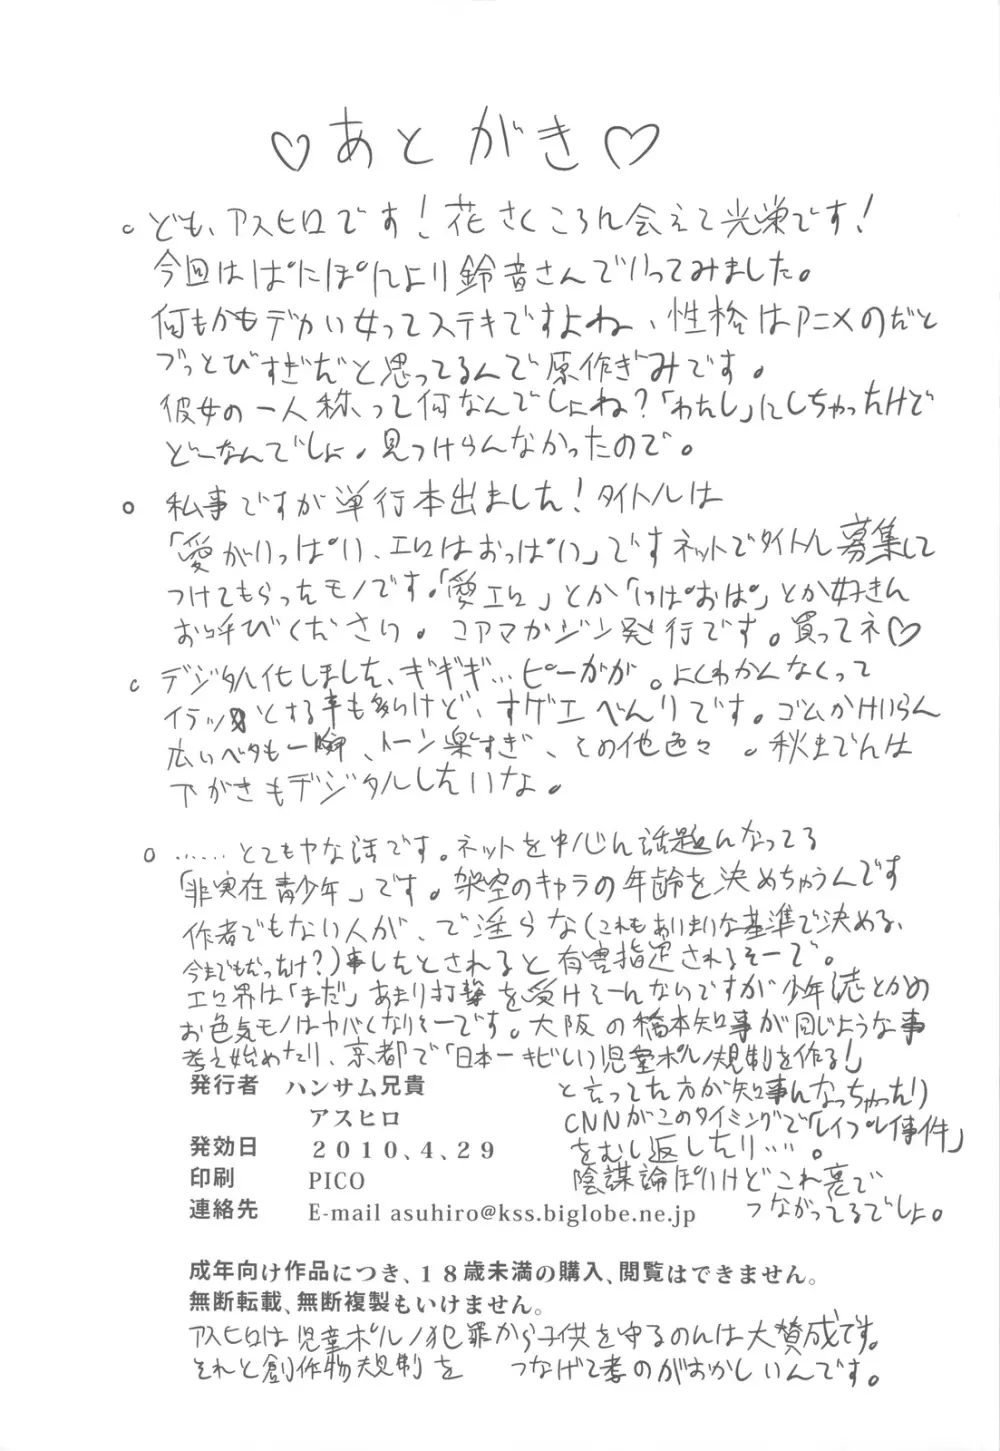 ♡あとがき♡
○ ども、アスヒロです！花さくころに会えて光栄です！
今回はぱにぽにより鈴音さんでいってみました。
何もかもデカい女ってステキですよね、性格はアニメのだと
ブっとびすぎだと思ってるんで原作ぎみです。
彼女の一人称って何なんでしょね？「わたし」にしちゃったけど
どーなんでしょ、見つけらんなかったので。
○ 私事ですが単行本出ました！タイトルは
「愛がいっぱい、エロはおっぱい」ですネットでタイトル募集して
つけてもらったモノです。「愛エロ」とか「いぱおぱ」とか好きに
お呼びください。コアマガジン発行です。買ってネ♡
○ デジタル化しました、ギギギ…ピーガガ。よくわかんなくって
イラッとする事も多いけど、すゲエべんりです。ゴムかけいらん
広いベタも一瞬、トーン楽すぎ、その他色々。秋までには
下がきもデジタルしたいな。
○ ……とてもヤな話です。ネットを中心に話題になってる
「非実在青少年」です。架空のキャラの年齢を決めちゃうんです
作者でもない人が、で淫らな(これもあいまいな基準で決める、
今までもだっけ？)事したとされると有害指定されるそーで。
エロ界は「まだ」あまり打撃を受けそーにないですが少年誌とかの
お色気モノはヤバくなりそーです。大阪の橋本知事が同じような事
考え始めたり、京都で「日本一キビしい児童ポルノ規制を作る！」
と言ってた方が知事になっちゃったり
CNNがこのタイミングで「レイプレイ事件」
をむし返したり…。
陰謀論ぽいけどこれ裏で
つながってるでしょ。
発行者 ハンサム兄貴
アスヒロ
発効日 2010.4.29
印刷 PICO
連絡先 E-mail asuhiro@kss.biglobe.ne.jp
成年向け作品につき、18歳未満の購入、閲覧はできません。
無断転載、無断複製もいけません。
アスヒロは児童ポルノ犯罪から子供を守るのには大賛成です。
それと創作物規制を つなげて考のがおかしいんです。